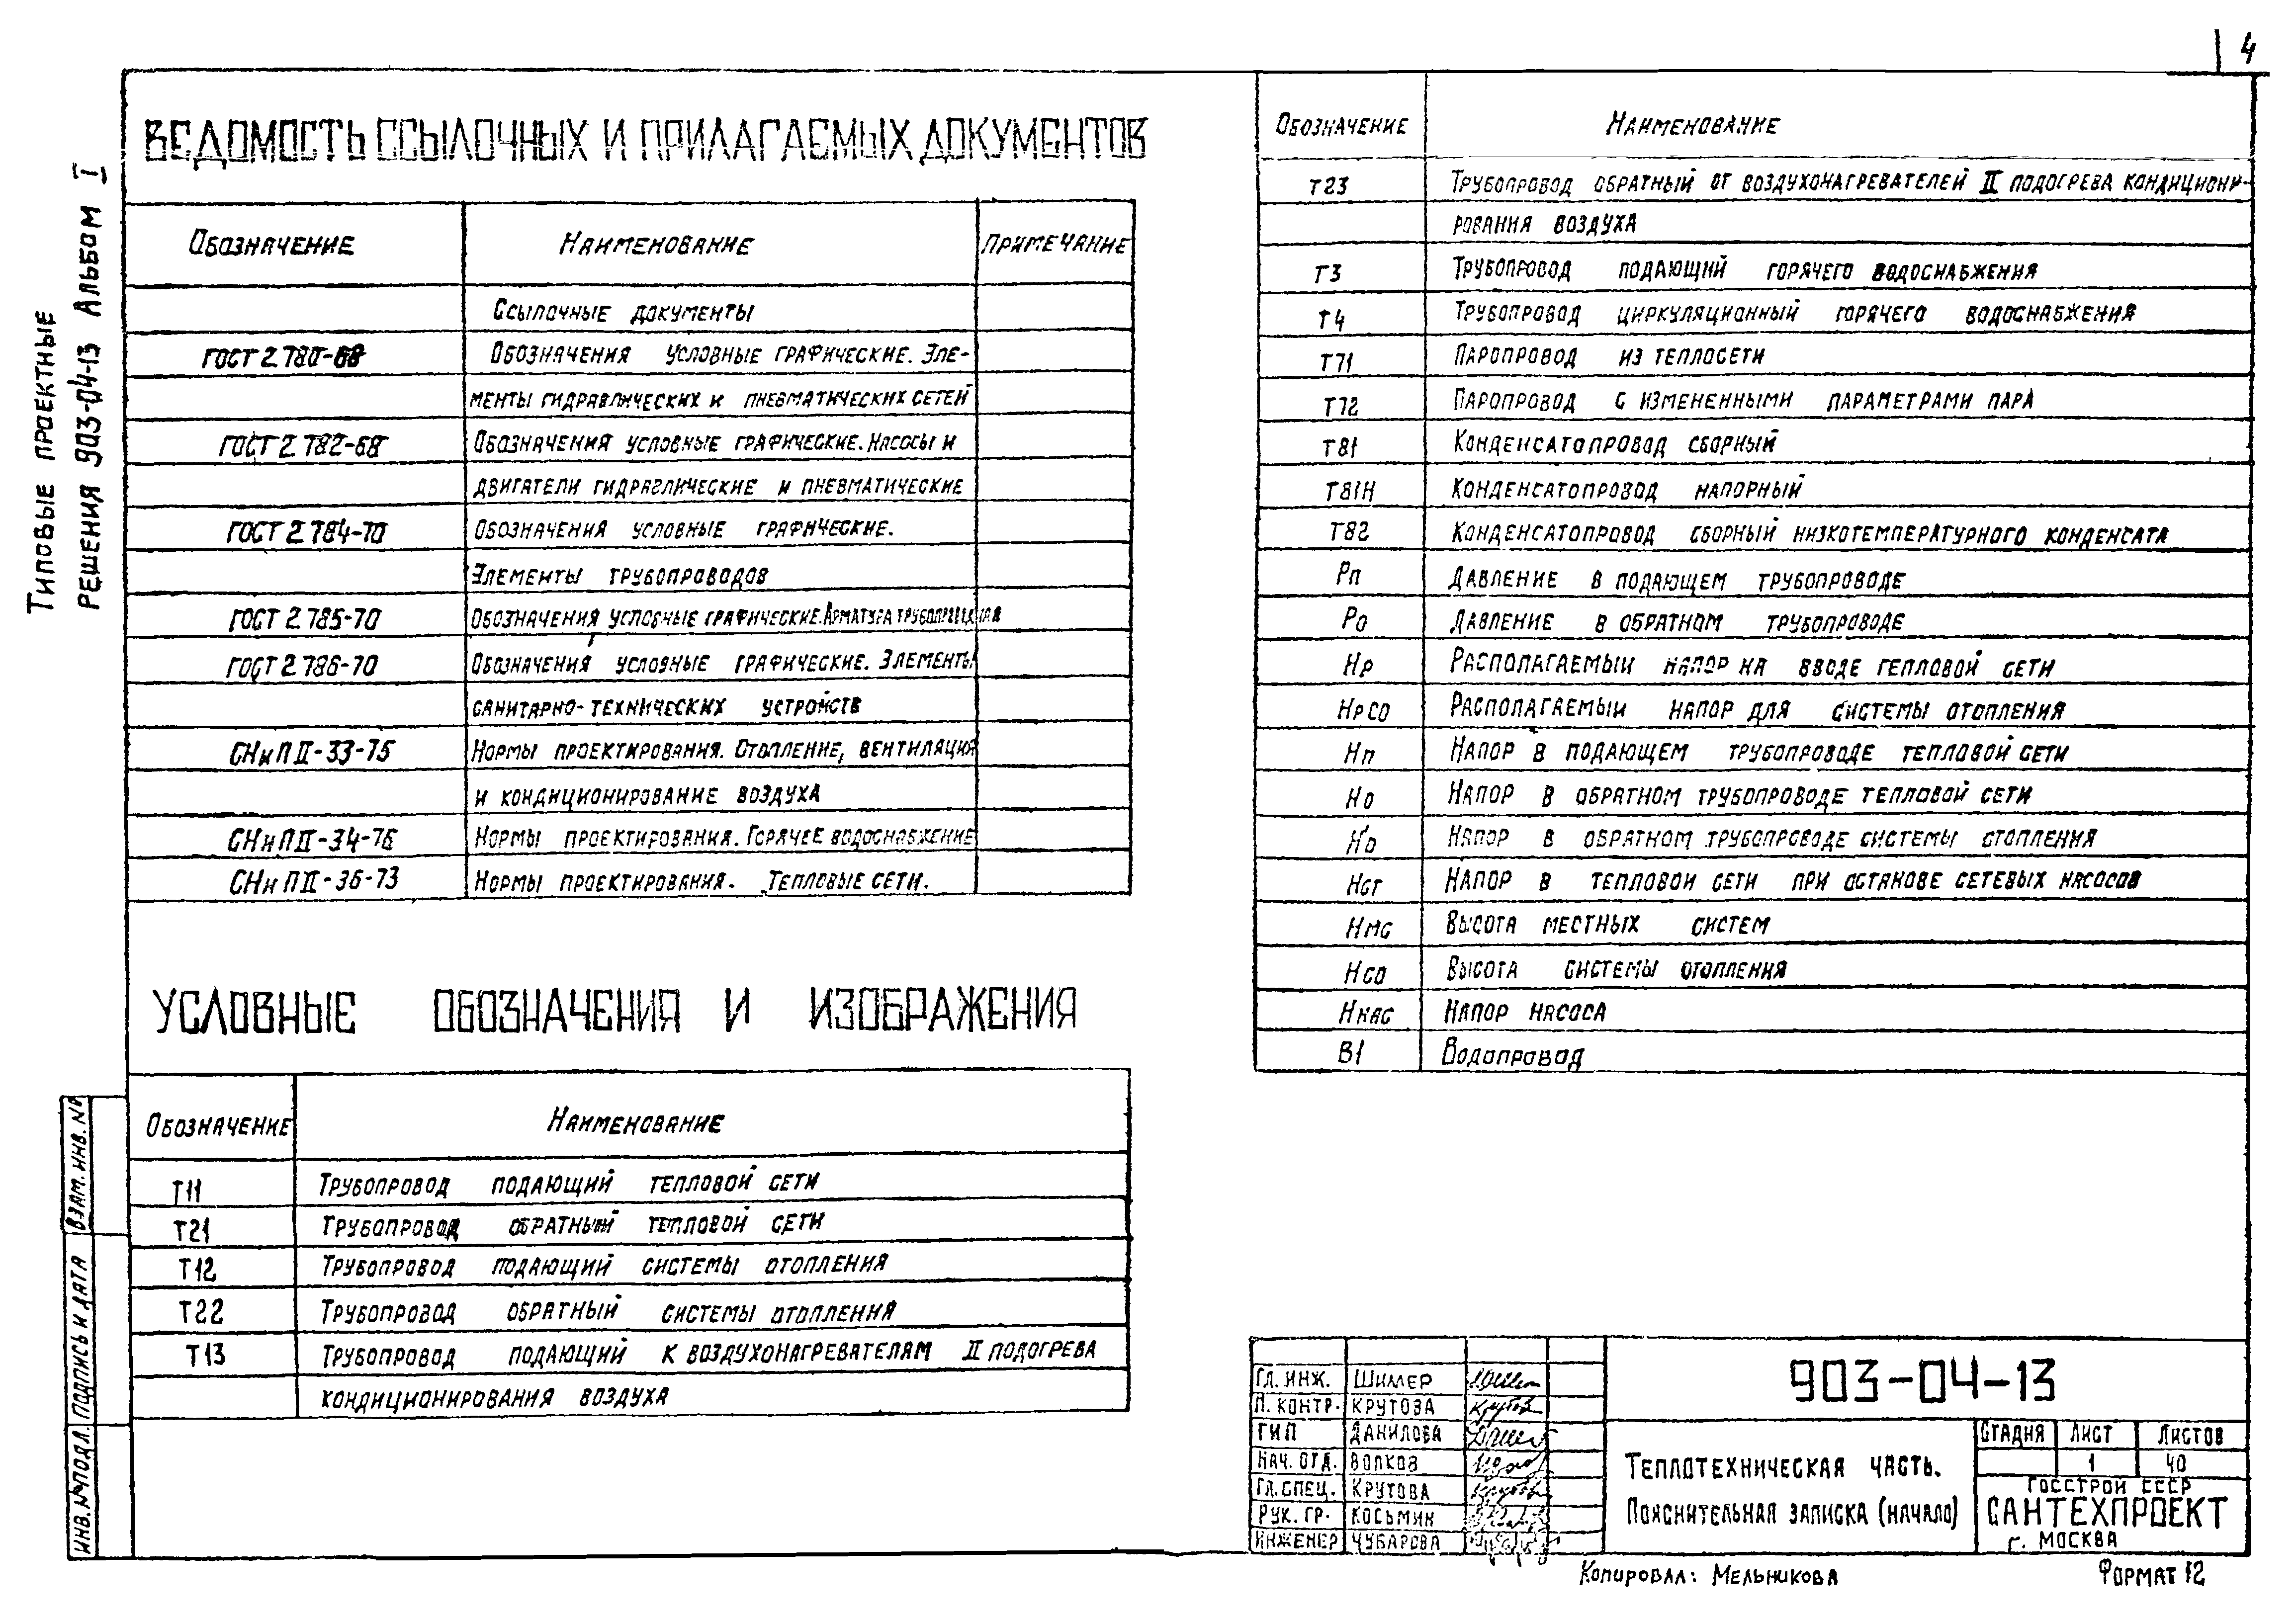 4
Типовые проектные
решения 903-04-13 Альбом I
Ведомость ссылочных и прилагаемых документов
Обозначение Наименование Примечание
Ссылочные документы
ГОСТ 2.780-68 Обозначения условные графические. Эле-
менты гидравлических и пневматических сетей
ГОСТ 2.782-68 Обозначения условные графические. Насосы и
двигатели гидравлические и пневматические
ГОСТ 2.784-70 Обозначения условные графические.
Элементы трубопроводов
ГОСТ 2.785-70 Обозначения условные графические. Арматура трубопроводная
ГОСТ 2.786-70 Обозначения условные графические. Элементы
санитарно-технических устройств
СНиП II-33-75 Нормы проектирования. Отопление, вентиляция
и кондиционирование воздуха
СНиП II-34-76 Нормы проектирования. Горячее водоснабжение
СНиП II-36-73 Нормы проектирования. Тепловые сети.
Условные обозначения и изображения
Обозначение Наименование
Т11 Трубопровод подающий тепловой сети
Т21 Трубопровод обратный тепловой сети
Т12 Трубопровод подающий системы отопления
Т22 Трубопровод обратный системы отопления
Т13 Трубопровод подающий к воздухонагревателям II подогрева
кондиционирования воздуха
Обозначение Наименование
Т23 Трубопровод обратный от воздухонагревателей II подогрева кондициони-
рования воздуха
Т3 Трубопровод подающий горячего водоснабжения
Т4 Трубопровод циркуляционный горячего водоснабжения
Т71 Паропровод из теплосети
Т72 Паропровод с измененными параметрами пара
Т81 Конденсатопровод сборный
Т81Н Конденсатопровод напорный
Т82 Конденсатопровод сборный низкотемпературного конденсата
Рп Давление в подающем трубопроводе
Ро Давление в обратном трубопроводе
Нр Располагаемый напор на вводе тепловой сети
Нрсо Располагаемый напор для системы отопления
Нп Напор в подающем трубопроводе тепловой сети
Но Напор в обратном трубопроводе тепловой сети
Н'о Напор в обратном трубопроводе системы отопления
Нст Напор в тепловой сети при останове сетевых насосов
Нмс Высота местных систем
Нсо Высота системы отопления
Ннас Напор насоса
В1 Водопровод
Взам. инв. №
Подпись и дата
Инв. № подл.
Гл. инж. Шиллер
Н. контр. Крутова
ГИП Данилова
Нач. отд. Волков
Гл. спец. Крутова
Рук. гр. Косьмин
Инженер Чубарова
903-04-13
Теплотехническая часть.
Пояснительная записка (начало)
Стадия Лист Листов
1 40
Госстрой СССР
САНТЕХПРОЕКТ
г. Москва
Копировал: Мельникова Формат 12